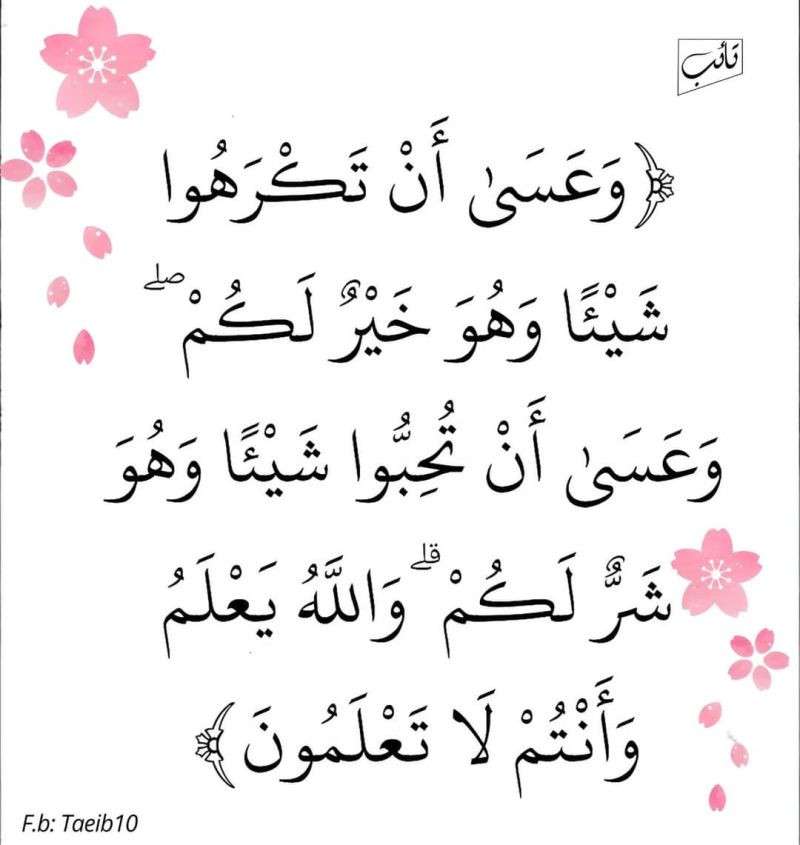 تائب
﴿وَعَسَىٰ أَنْ تَكْرَهُوا
شَيْئًا وَهُوَ خَيْرٌ لَكُمْ ۖ
وَعَسَىٰ أَنْ تُحِبُّوا شَيْئًا وَهُوَ
شَرٌّ لَكُمْ ۗ وَاللَّهُ يَعْلَمُ
وَأَنْتُمْ لَا تَعْلَمُونَ﴾
F.b: Taeib10